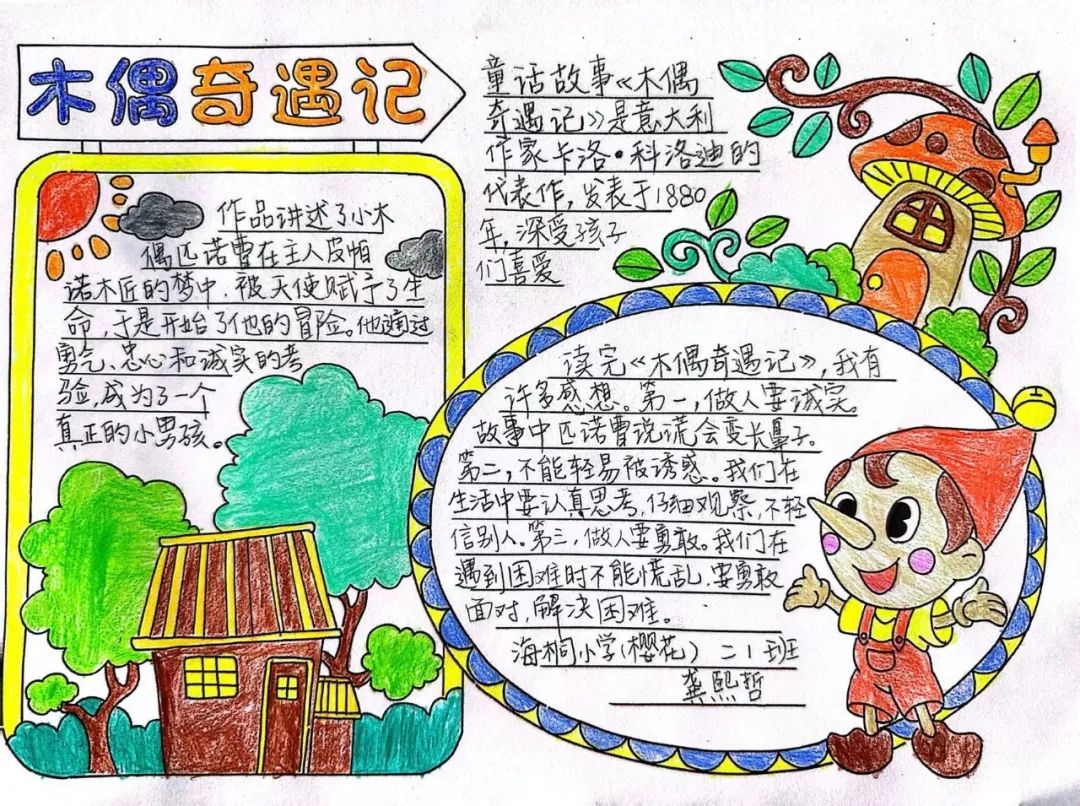 木偶奇遇记
作品讲述了小木
偶匹诺曹在主人皮帕
诺木匠的梦中，被天使赋予了生
命，于是开始了他的冒险。他通过
勇气、忠心和诚实的考
验，成为了一个
真正的小男孩。
童话故事《木偶
奇遇记》是意大利
作家卡洛·科洛迪的
代表作，发表于1880
年，深受孩子
们喜爱
读完《木偶奇遇记》，我有
许多感想。第一，做人要诚实。
故事中匹诺曹说谎会变长鼻子。
第二，不能轻易被诱惑。我们在
生活中要认真思考，仔细观察，不轻
信别人。第三，做人要勇敢。我们在
遇到困难时不能慌乱，要勇敢
面对，解决困难。
海桐小学（樱花） 二1班
龚熙哲